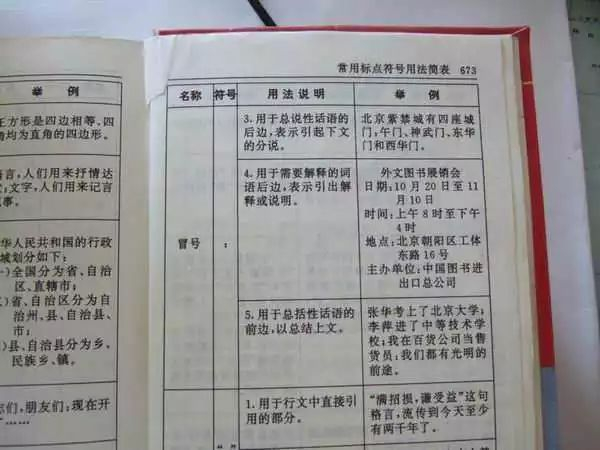 举 例
方形是四边相等，四
角均为直角的四边形。
言，人们用来抒情达
；文字，人们用来记言
事。
华人民共和国的行政
域划分如下：
）全国分为省、自治
区、直辖市；
）省、自治区分为自
治州、县、自治县、
市；
）县、自治县分为乡、
民族乡、镇。
们，朋友们：现在开
……
常用标点符号用法简表 673
名称 符号 用法说明 举 例
3. 用于总说性话语的
后边，表示引起下文
的分说。
北京紫禁城有四座城
门：午门、神武门、东华
门和西华门。
冒号
：
4. 用于需要解释的词
语后边，表示引出解
释或说明。
外文图书展销会
日期：10 月 20 日至 11
月 10 日
时间：上午 8 时至下午
4 时
地点：北京朝阳区工体
东路 16 号
主办单位：中国图书进
出口总公司
5. 用于总括性话语的
前边，以总结上文。
张华考上了北京大学；
李萍进了中等技术学
校；我在百货公司当售
货员：我们都有光明的
前途。
1. 用于行文中直接引
用的部分。
“满招损，谦受益”这句
格言，流传到今天至少
有两千年了。
“ ”